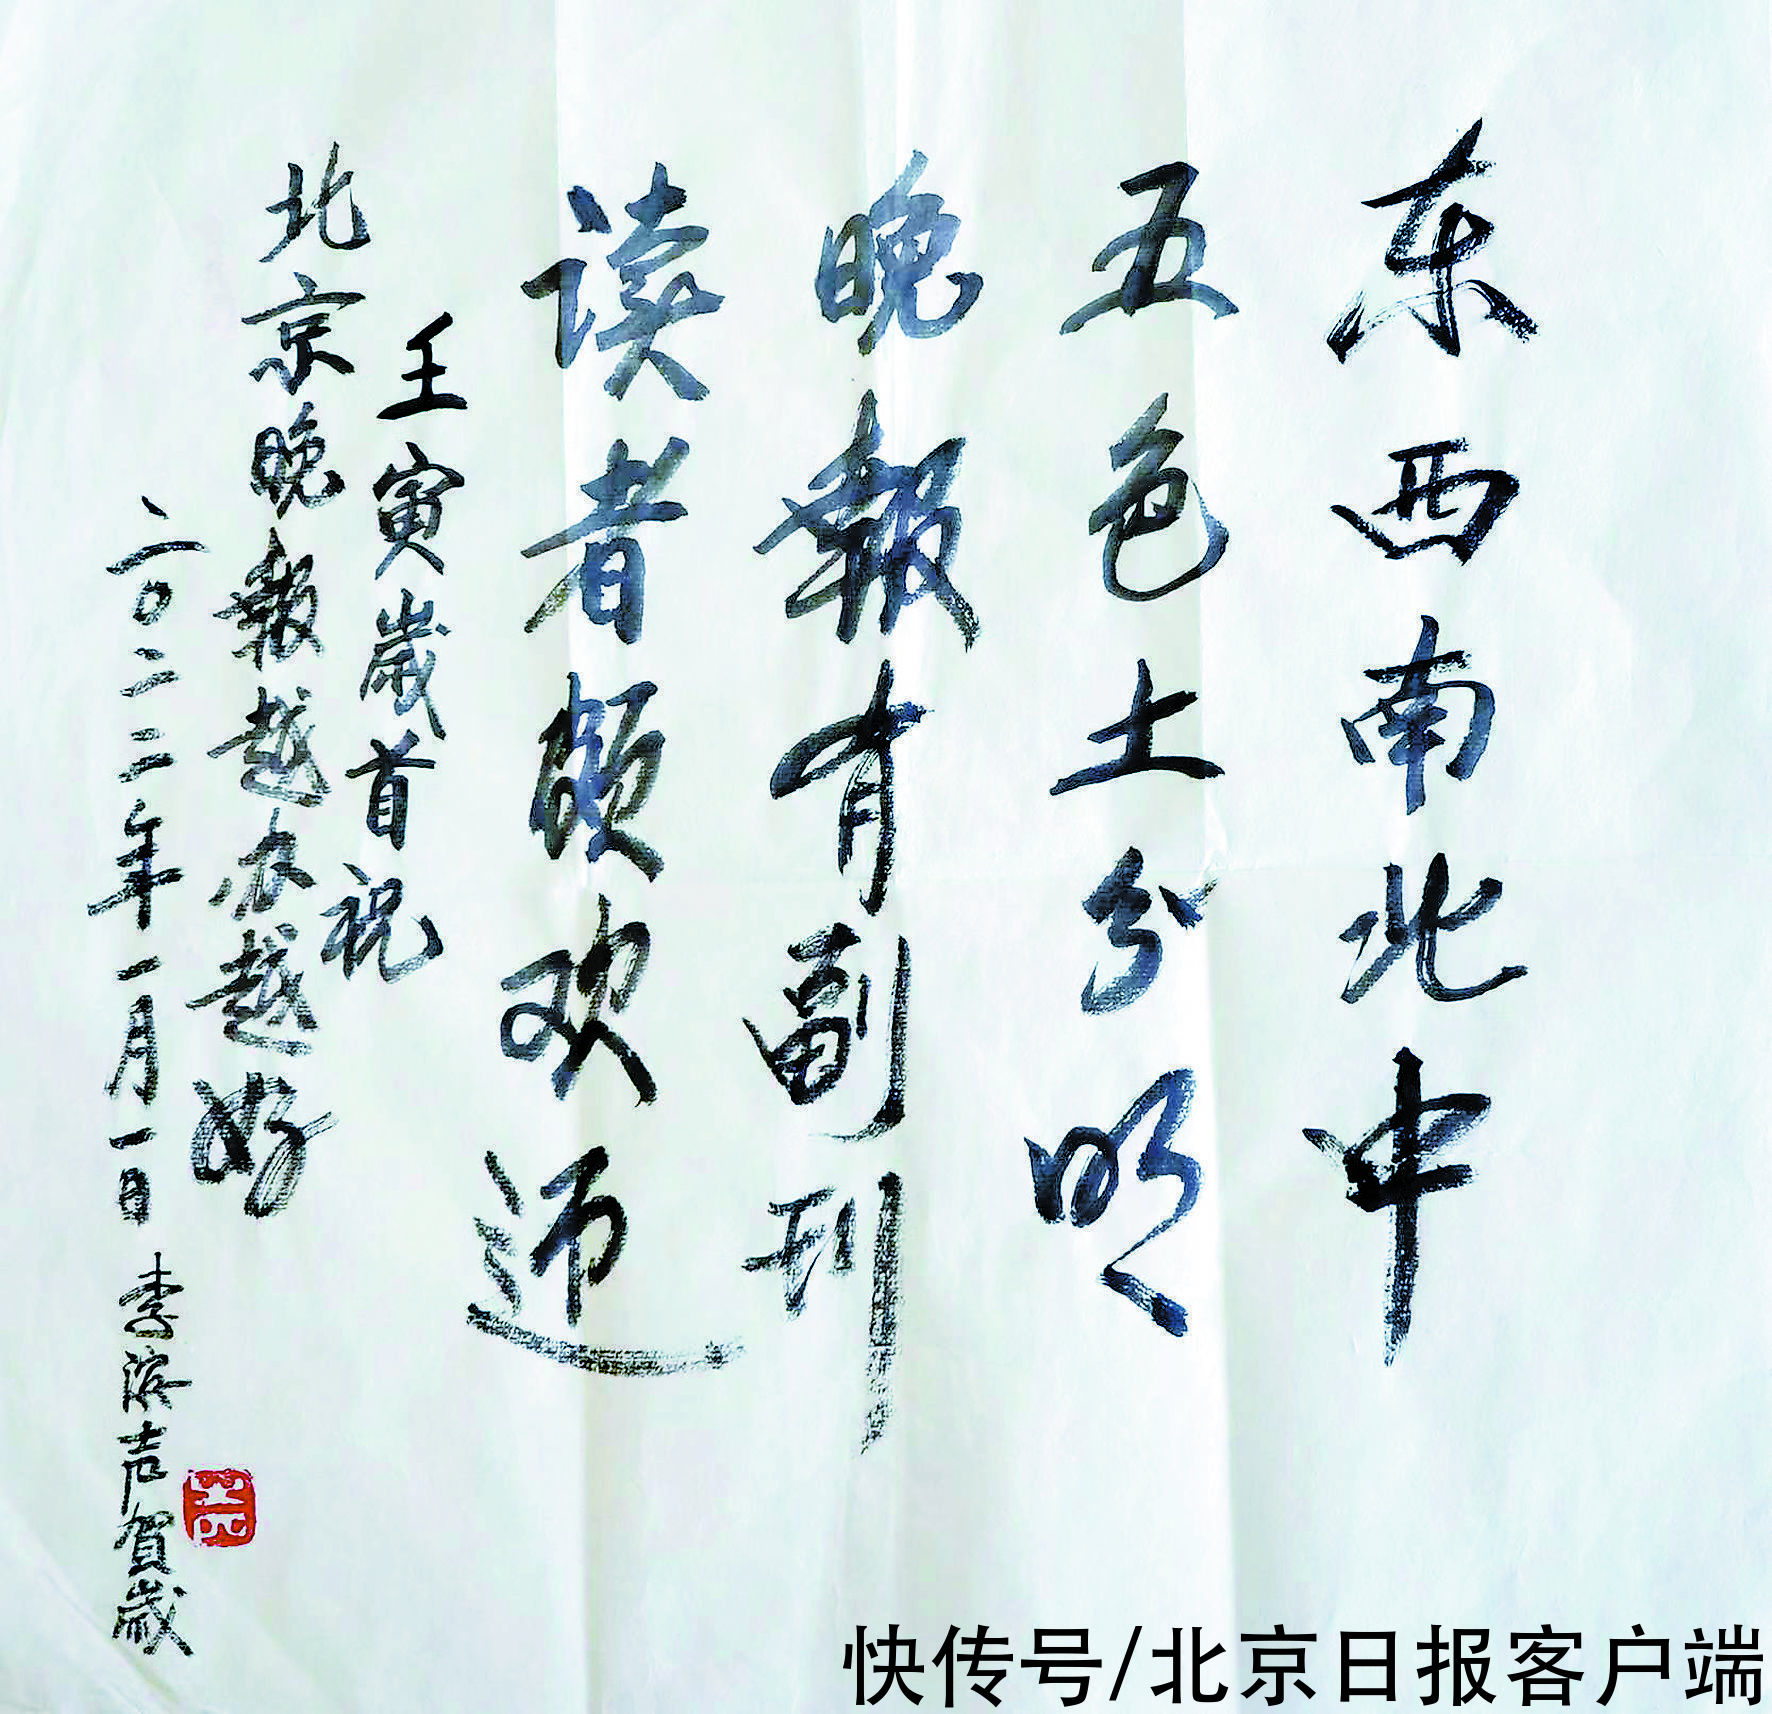 东西南北中
五色土分明
晚報有副刊
读者颇欢迎
壬寅歲首祝
北京晚報越办越好
二〇二二年一月一日 李滨声賀歲
快传号/北京日报客户端